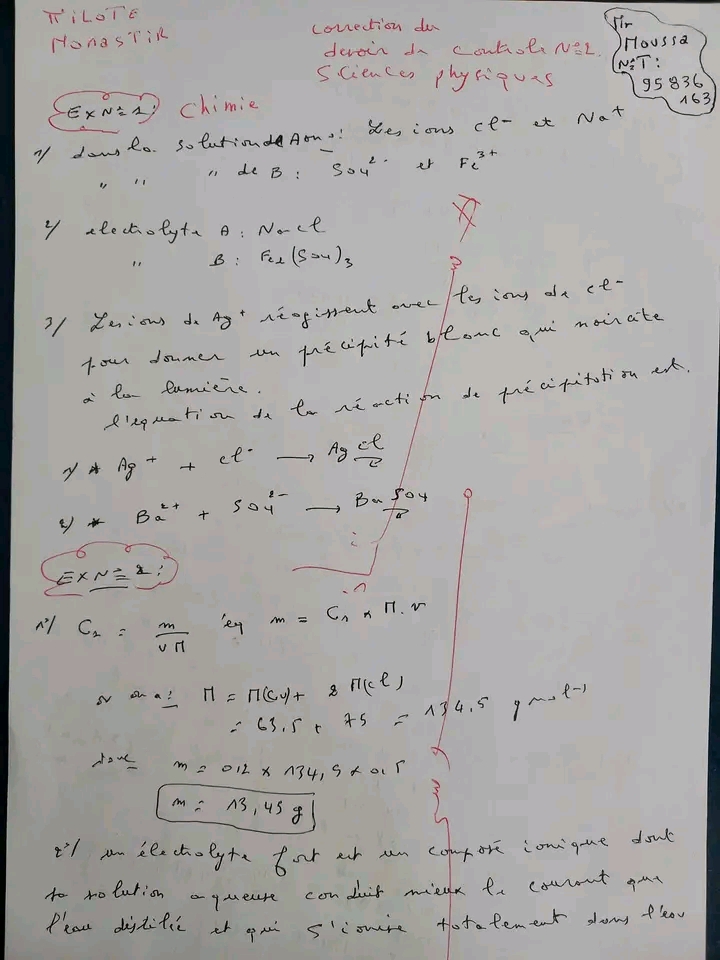 PILOTE
MONASTIR
correction du
devoir de controle N°2.
Sciences physiques
Mr
Moussa
N° T:
95 836
163
Ex N° 1: Chimie
1/ dans la solution de A on : Les ions Cl⁻ et Na⁺
" " " de B : SO₄²⁻ et Fe³⁺
2/ electrolyte A : NaCl
" B : Fe₂(SO₄)₃
3/ Les ions de Ag⁺ réagissent avec les ions de Cl⁻
pour donner un précipité blanc qui noircite
à la lumière.
l'equation de la réaction de précipitation est.
1/ * Ag⁺ + Cl⁻ → AgCl
2/ * Ba²⁺ + SO₄²⁻ → BaSO₄
Ex N° 2:
1°/ C₁ = m / v M éq m = C₁ × M . v
or on a : M = M(Cu) + 2 M(Cl)
= 63,5 + 75 = 134,5 g mol⁻¹
donc m = 0,2 × 134,5 × 0,5
m = 13,45 g
2°/ un électrolyte fort est un composé ionique dont
sa solution aqueuse conduit mieux le courant que
l'eau distilié et qui s'ionise totalement dans l'eau